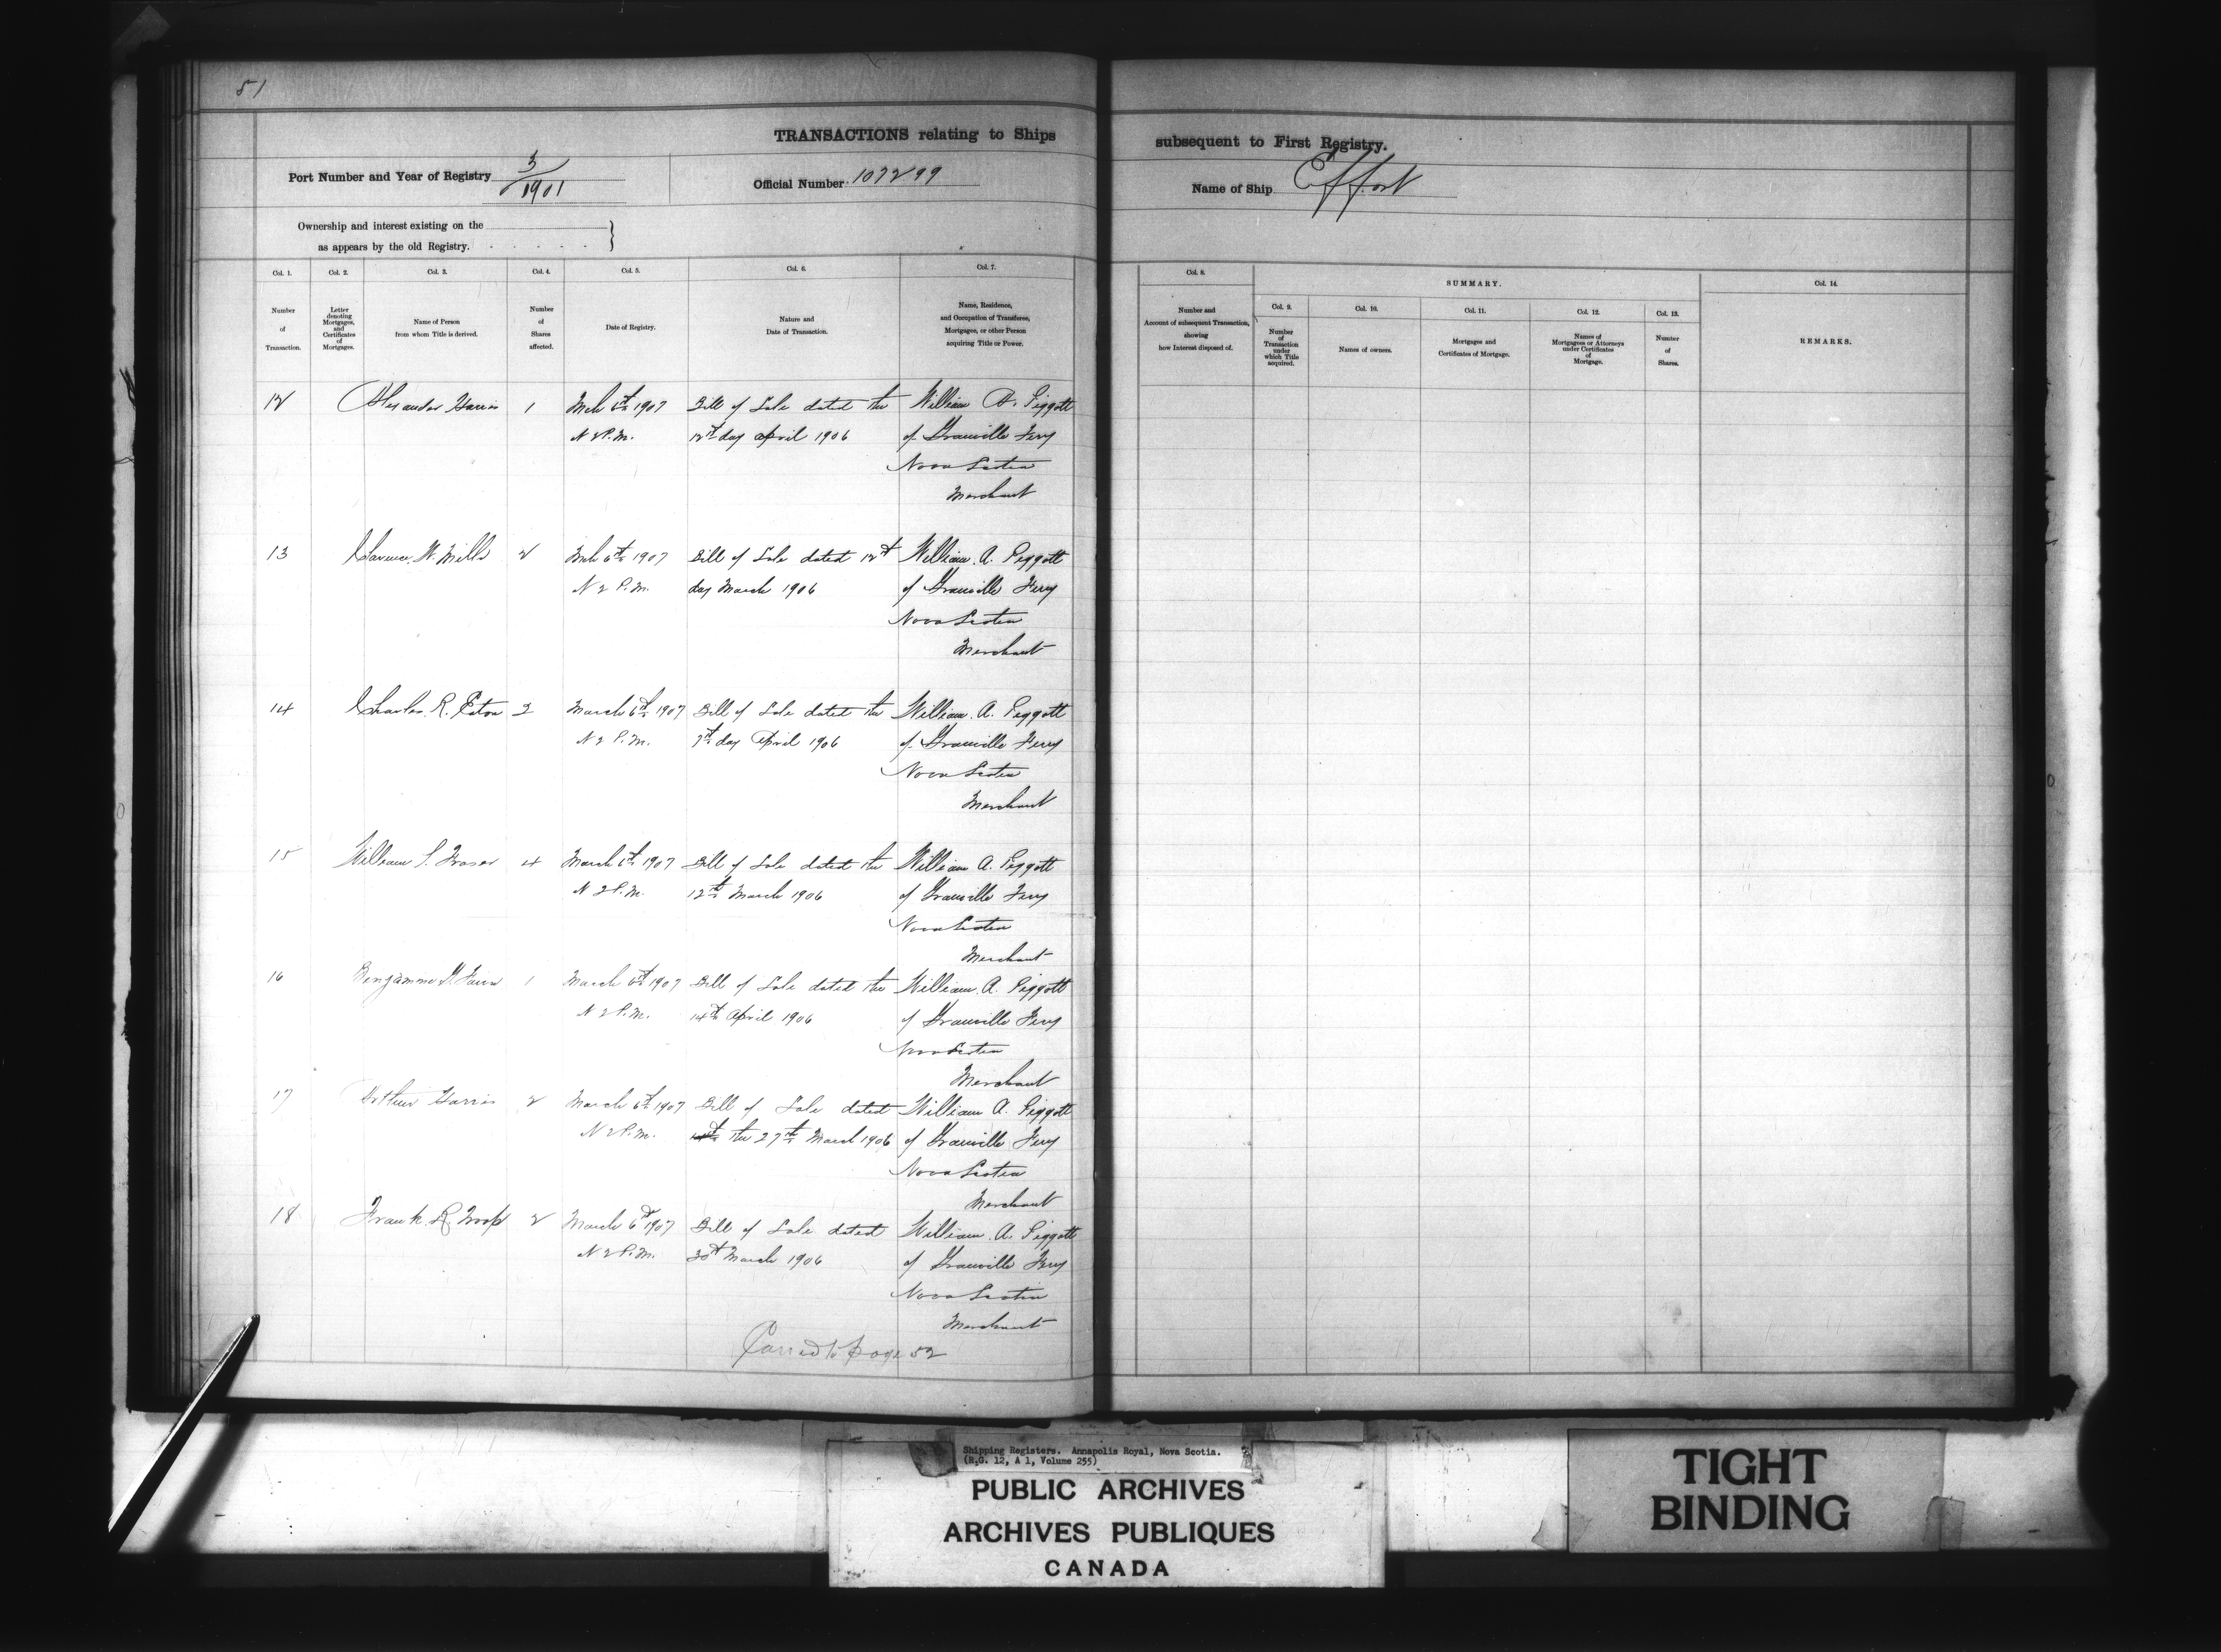 51
TRANSACTIONS relating to Ships subsequent to First Registry.
Port Number and Year of Registry 3/1901 Official Number 107299 Name of Ship Effort
Ownership and interest existing on the
as appears by the old Registry.
Col. 1. Col. 2. Col. 3. Col. 4. Col. 5. Col. 6. Col. 7. Col. 8. SUMMARY. Col. 14.
Col. 9. Col. 10. Col. 11. Col. 12. Col. 13.
Number of Transaction.
Letter denoting Mortgages, and Certificates of Mortgages.
Name of Person from whom Title is derived.
Number of Shares affected.
Date of Registry.
Nature and Date of Transaction.
Name, Residence, and Occupation of Transferee, Mortgagee, or other Person acquiring Title or Power.
Number and Account of subsequent Transaction, showing how Interest disposed of.
Number of Transaction under which Title acquired.
Names of owners.
Mortgages and Certificates of Mortgage.
Names of Mortgagees or Attorneys under Certificates of Mortgage.
Number of Shares.
REMARKS.
12 Alexander Harris 1 Mch 6th 1907 Bill of Sale dated the William A. Piggott
N 2 P.M. 12th day April 1906 of Granville Ferry
Nova Scotia
Merchant
13 Clarence W. Mills 2 Mch 6th 1907 Bill of Sale dated 12th William A. Piggott
N 2 P.M. day March 1906 of Granville Ferry
Nova Scotia
Merchant
14 Charles R. Eaton 2 March 6th 1907 Bill of Sale dated the William A. Piggott
N 2 P.M. 7th day April 1906 of Granville Ferry
Nova Scotia
Merchant
15 William S. Fraser 4 March 6th 1907 Bill of Sale dated the William A. Piggott
N 2 P.M. 12th March 1906 of Granville Ferry
Nova Scotia
Merchant
16 1 March 6th 1907 Bill of Sale dated the William A. Piggott
N 2 P.M. 14th April 1906 of Granville Ferry
Nova Scotia
Merchant
17 Arthur Harris 2 March 6th 1907 Bill of Sale dated William A. Piggott
N 2 P.M. the 27th March 1906 of Granville Ferry
Nova Scotia
Merchant
18 Frank R. Troop 2 March 6th 1907 Bill of Sale dated William A. Piggott
N 2 P.M. 30th March 1906 of Granville Ferry
Nova Scotia
Merchant
Carried to page 52
Shipping Registers. Annapolis Royal, Nova Scotia.
(R.G. 12, A 1, Volume 255)
PUBLIC ARCHIVES
ARCHIVES PUBLIQUES
CANADA
TIGHT
BINDING